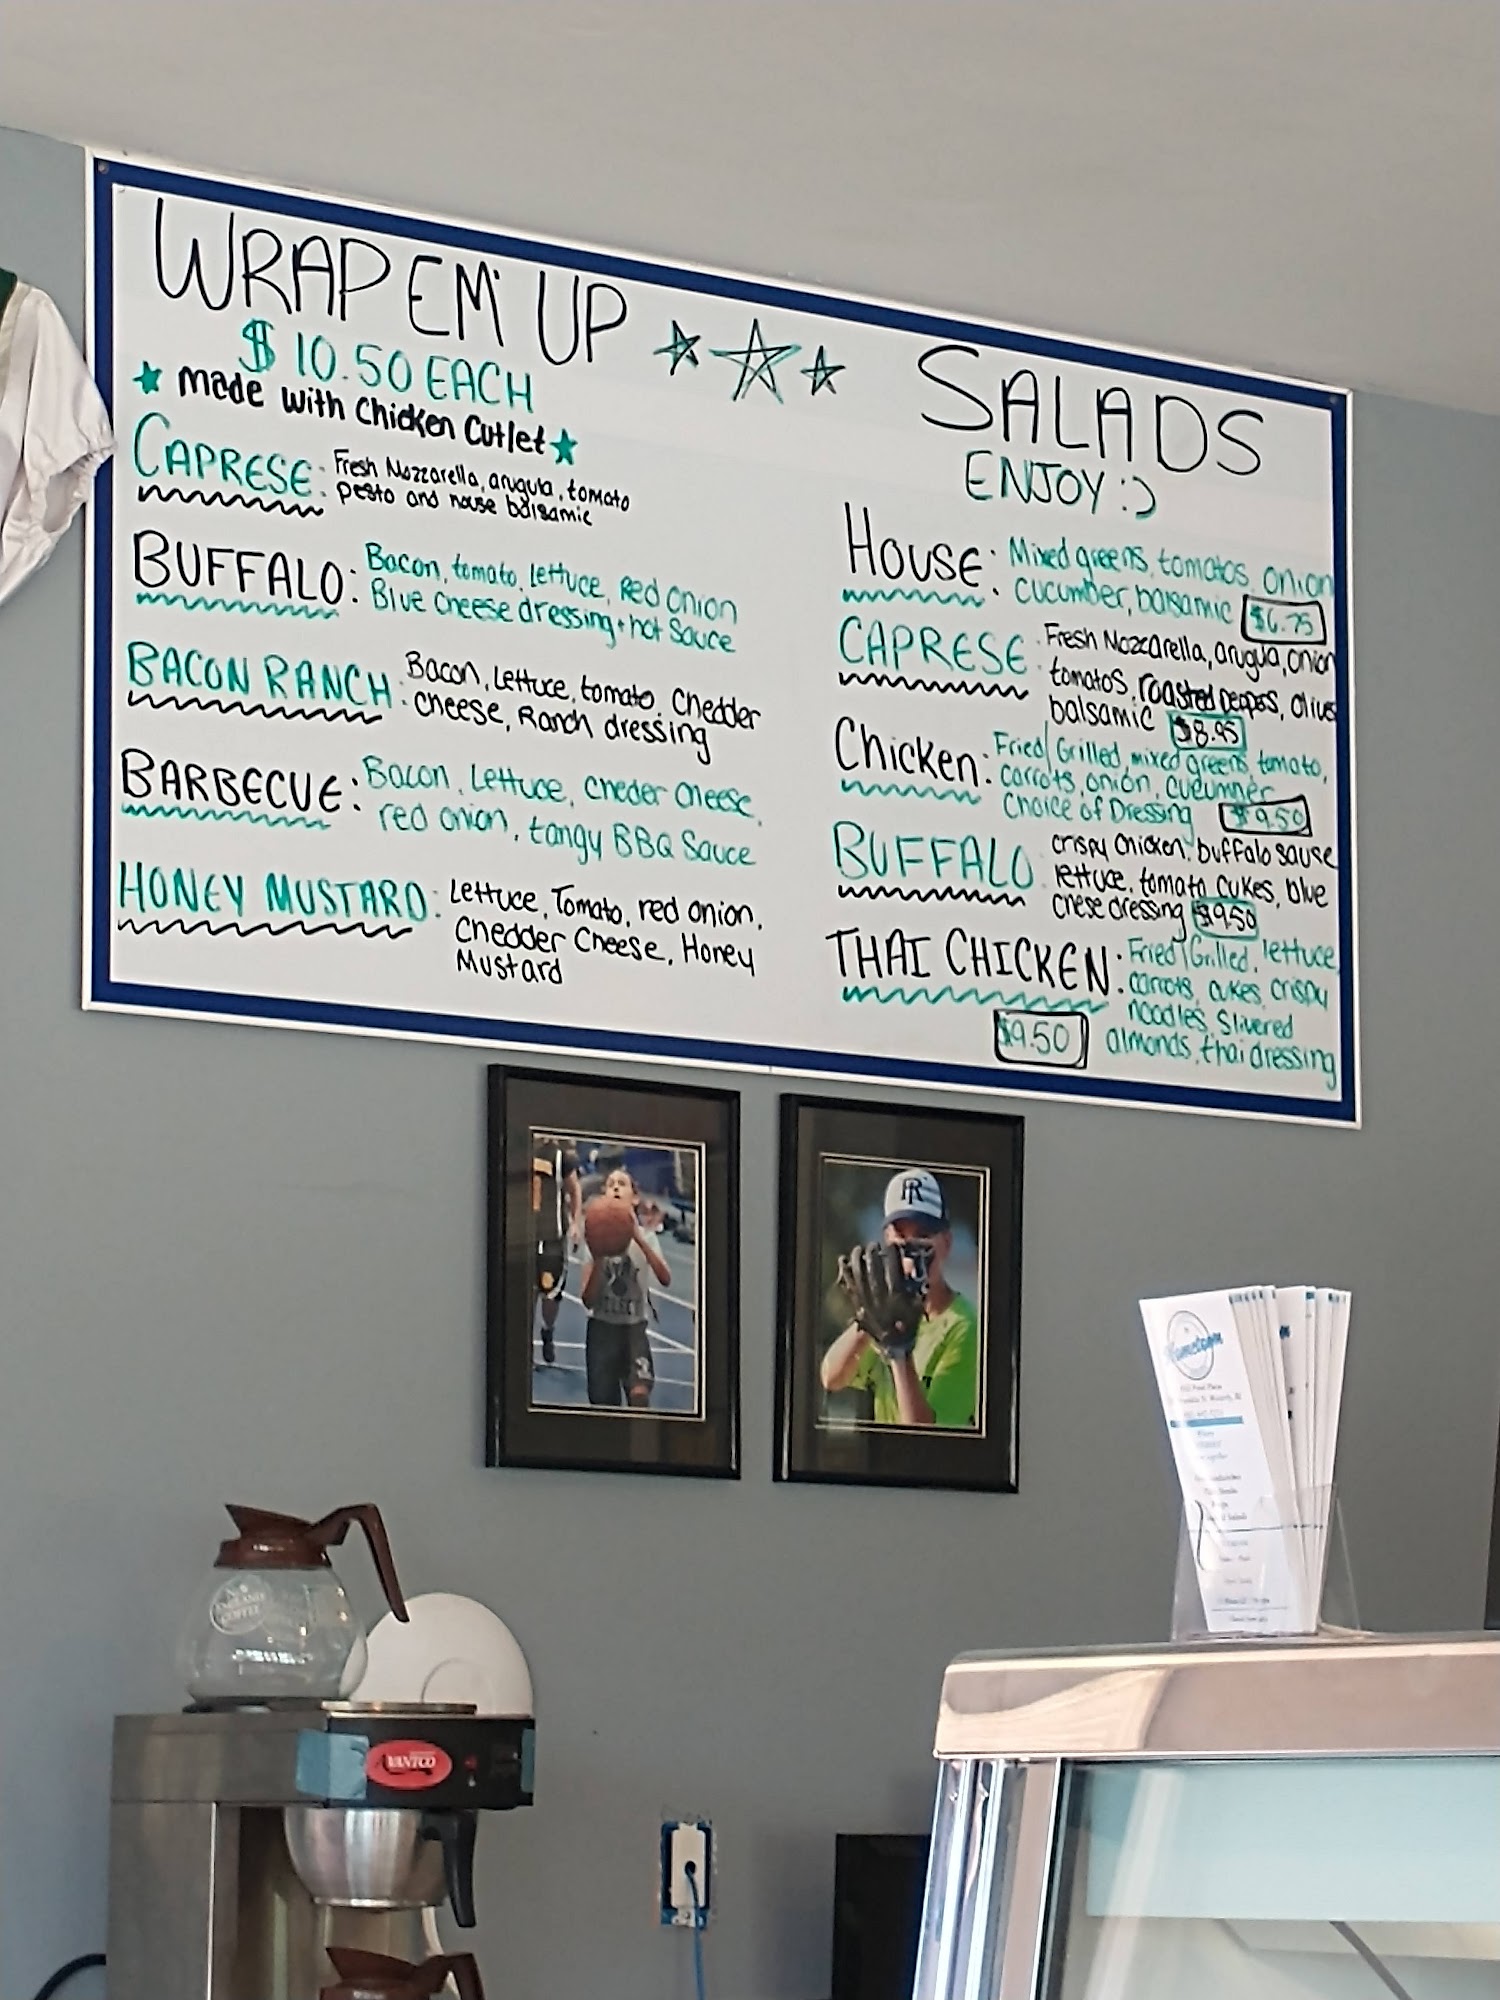 WRAP EM' UP
$10.50 EACH
made with Chicken Cutlet
CAPRESE: Fresh Mozzarella, arugula, tomato
pesto and house balsamic
BUFFALO: Bacon, tomato, lettuce, Red Onion
Blue cheese dressing + hot Sauce
BACON RANCH: Bacon, Lettuce, tomato, Chedder
cheese, Ranch dressing
BARBECUE: Bacon, Lettuce, cheder cheese,
red onion, tangy BBQ Sauce
HONEY MUSTARD: Lettuce, Tomato, red onion,
Chedder Cheese, Honey
Mustard
SALADS
ENJOY :)
HOUSE: Mixed greens, tomatos, onion
cucumber, balsamic $6.75
CAPRESE: Fresh Mozzarella, arugula, onion
tomatos, roasted peppers, olives
balsamic $8.95
Chicken: Fried/Grilled, mixed greens, tomato,
carrots, onion, cucumner
Choice of Dressing $9.50
BUFFALO: crispy chicken, buffalo sause
lettuce, tomato, cukes, blue
chese dressing $9.50
THAI CHICKEN: Fried/Grilled, lettuce,
carrots, cukes, crispy
noodles, slivered
$9.50 almonds, thai dressing
Hometown
NEW
ENGLAND
COFFEE
AVANTCO